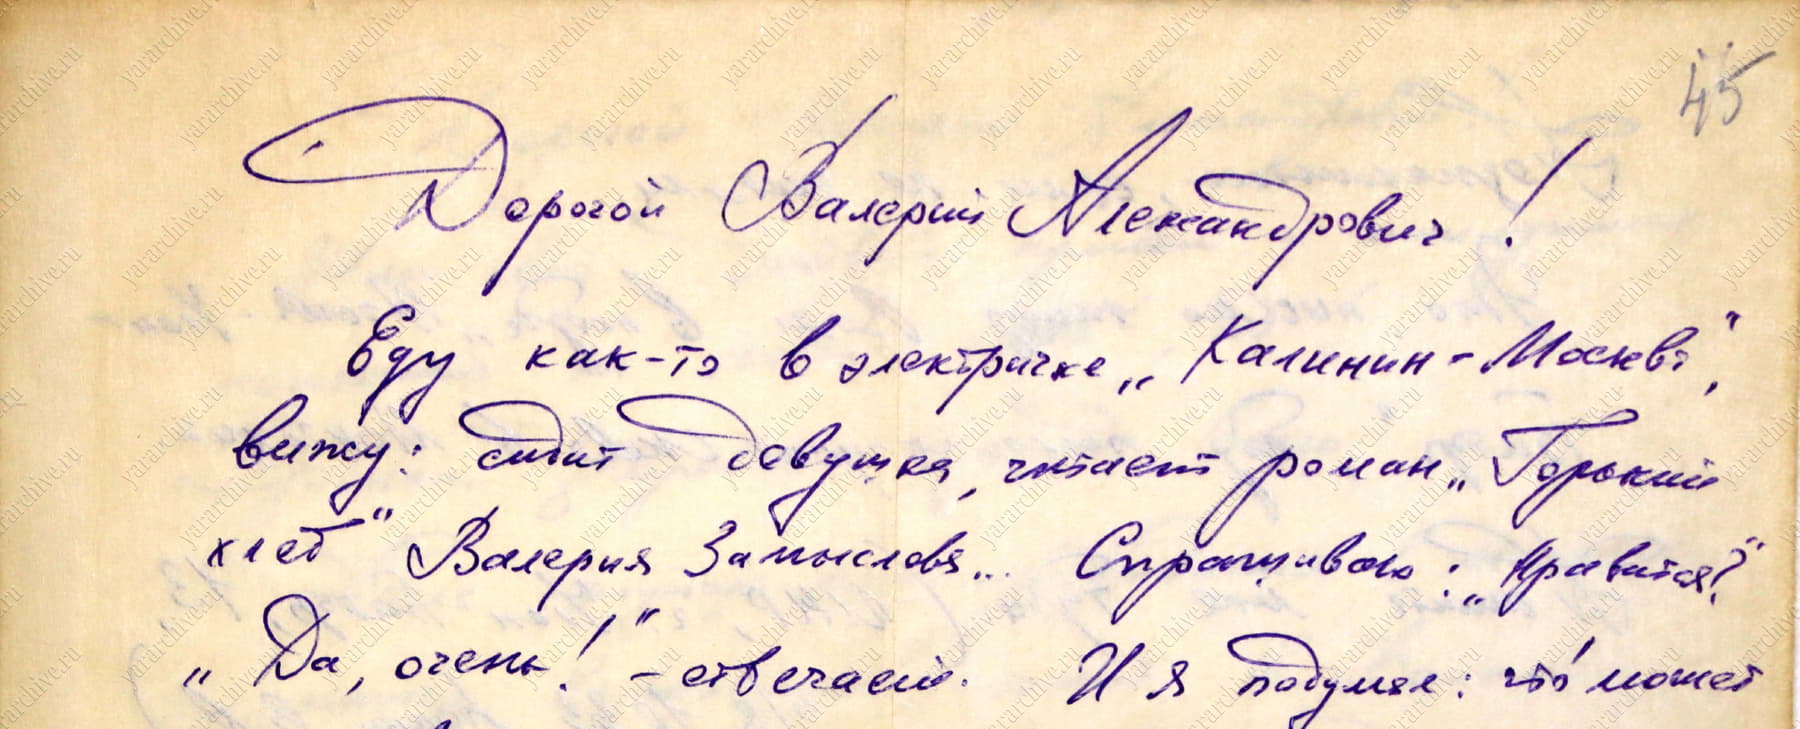 45
Дорогой Валерий Александрович!
Еду как-то в электричке „Калинин-Москва",
вижу: сидит девушка, читает роман „Горький
хлеб" Валерия Замыслова... Спрашиваю: „Нравится?"
„Да, очень!" - отвечает. И я подумал: что́ может